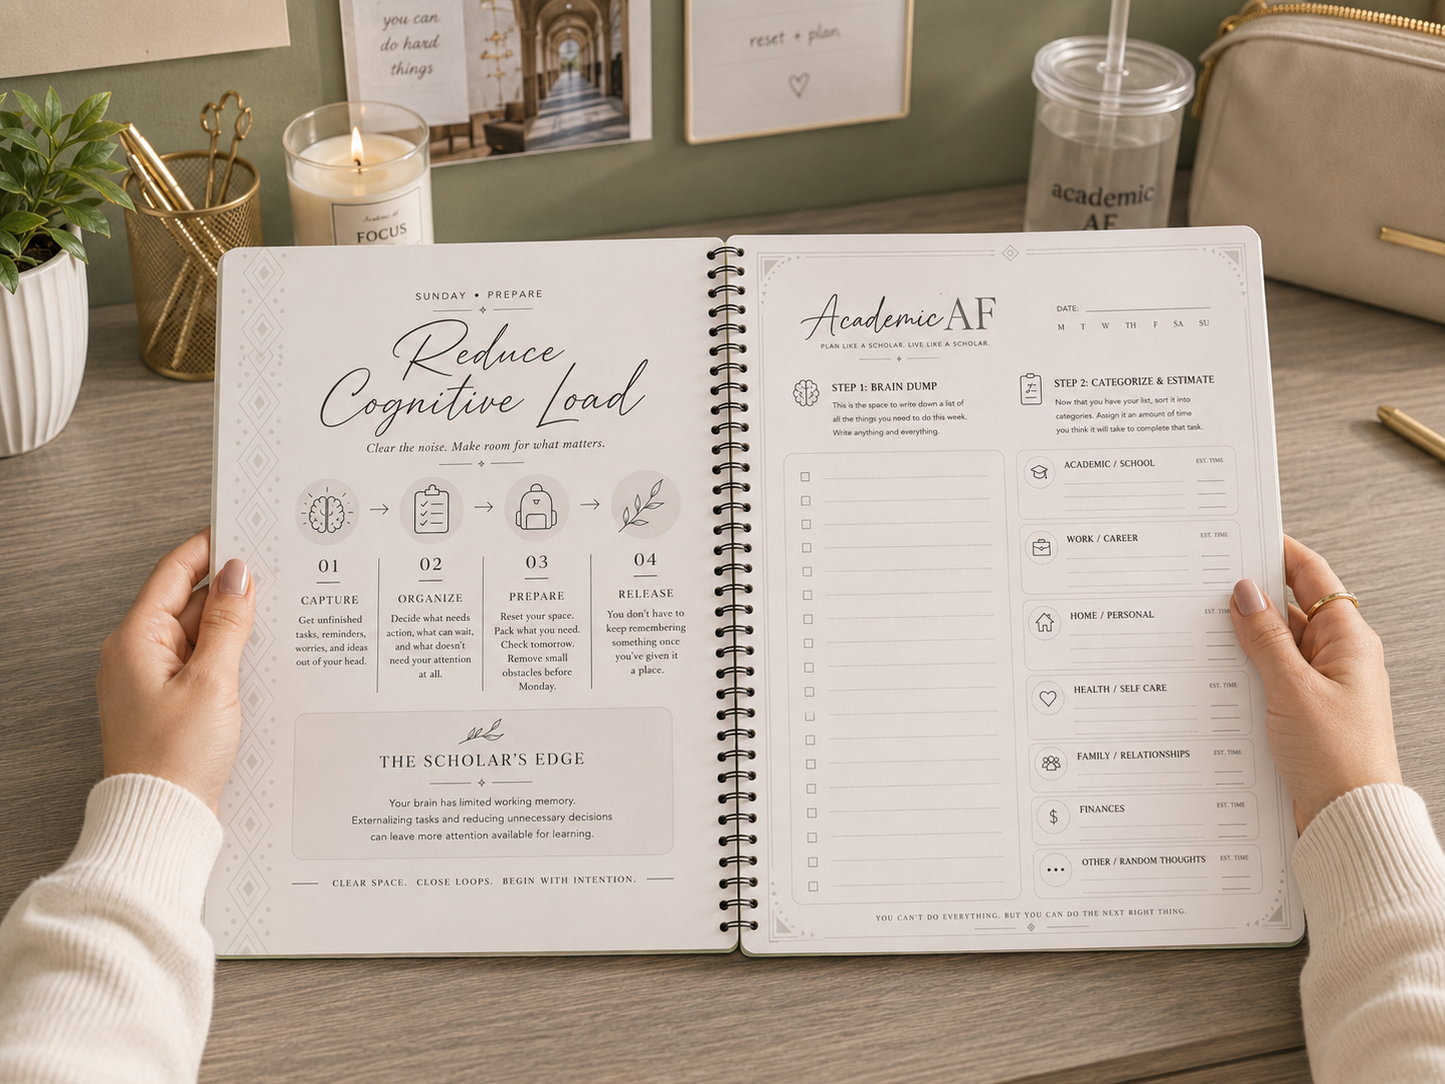 you can
do hard
things
reset + plan
Academic AF
FOCUS
academic
AF
SUNDAY • PREPARE
Reduce
Cognitive Load
Clear the noise. Make room for what matters.
01
CAPTURE
Get unfinished
tasks, reminders,
worries, and ideas
out of your head.
02
ORGANIZE
Decide what needs
action, what can wait,
and what doesn't
need your attention
at all.
03
PREPARE
Reset your space.
Pack what you need.
Check tomorrow.
Remove small
obstacles before
Monday.
04
RELEASE
You don't have to
keep remembering
something once
you've given it
a place.
THE SCHOLAR'S EDGE
Your brain has limited working memory.
Externalizing tasks and reducing unnecessary decisions
can leave more attention available for learning.
CLEAR SPACE. CLOSE LOOPS. BEGIN WITH INTENTION.
Academic AF
PLAN LIKE A SCHOLAR. LIVE LIKE A SCHOLAR.
DATE:
M T W TH F SA SU
STEP 1: BRAIN DUMP
This is the space to write down a list of
all the things you need to do this week.
Write anything and everything.
STEP 2: CATEGORIZE & ESTIMATE
Now that you have your list, sort it into
categories. Assign it an amount of time
you think it will take to complete that task.
ACADEMIC / SCHOOL EST. TIME
WORK / CAREER EST. TIME
HOME / PERSONAL EST. TIME
HEALTH / SELF CARE EST. TIME
FAMILY / RELATIONSHIPS EST. TIME
$ FINANCES EST. TIME
OTHER / RANDOM THOUGHTS EST. TIME
YOU CAN'T DO EVERYTHING. BUT YOU CAN DO THE NEXT RIGHT THING.